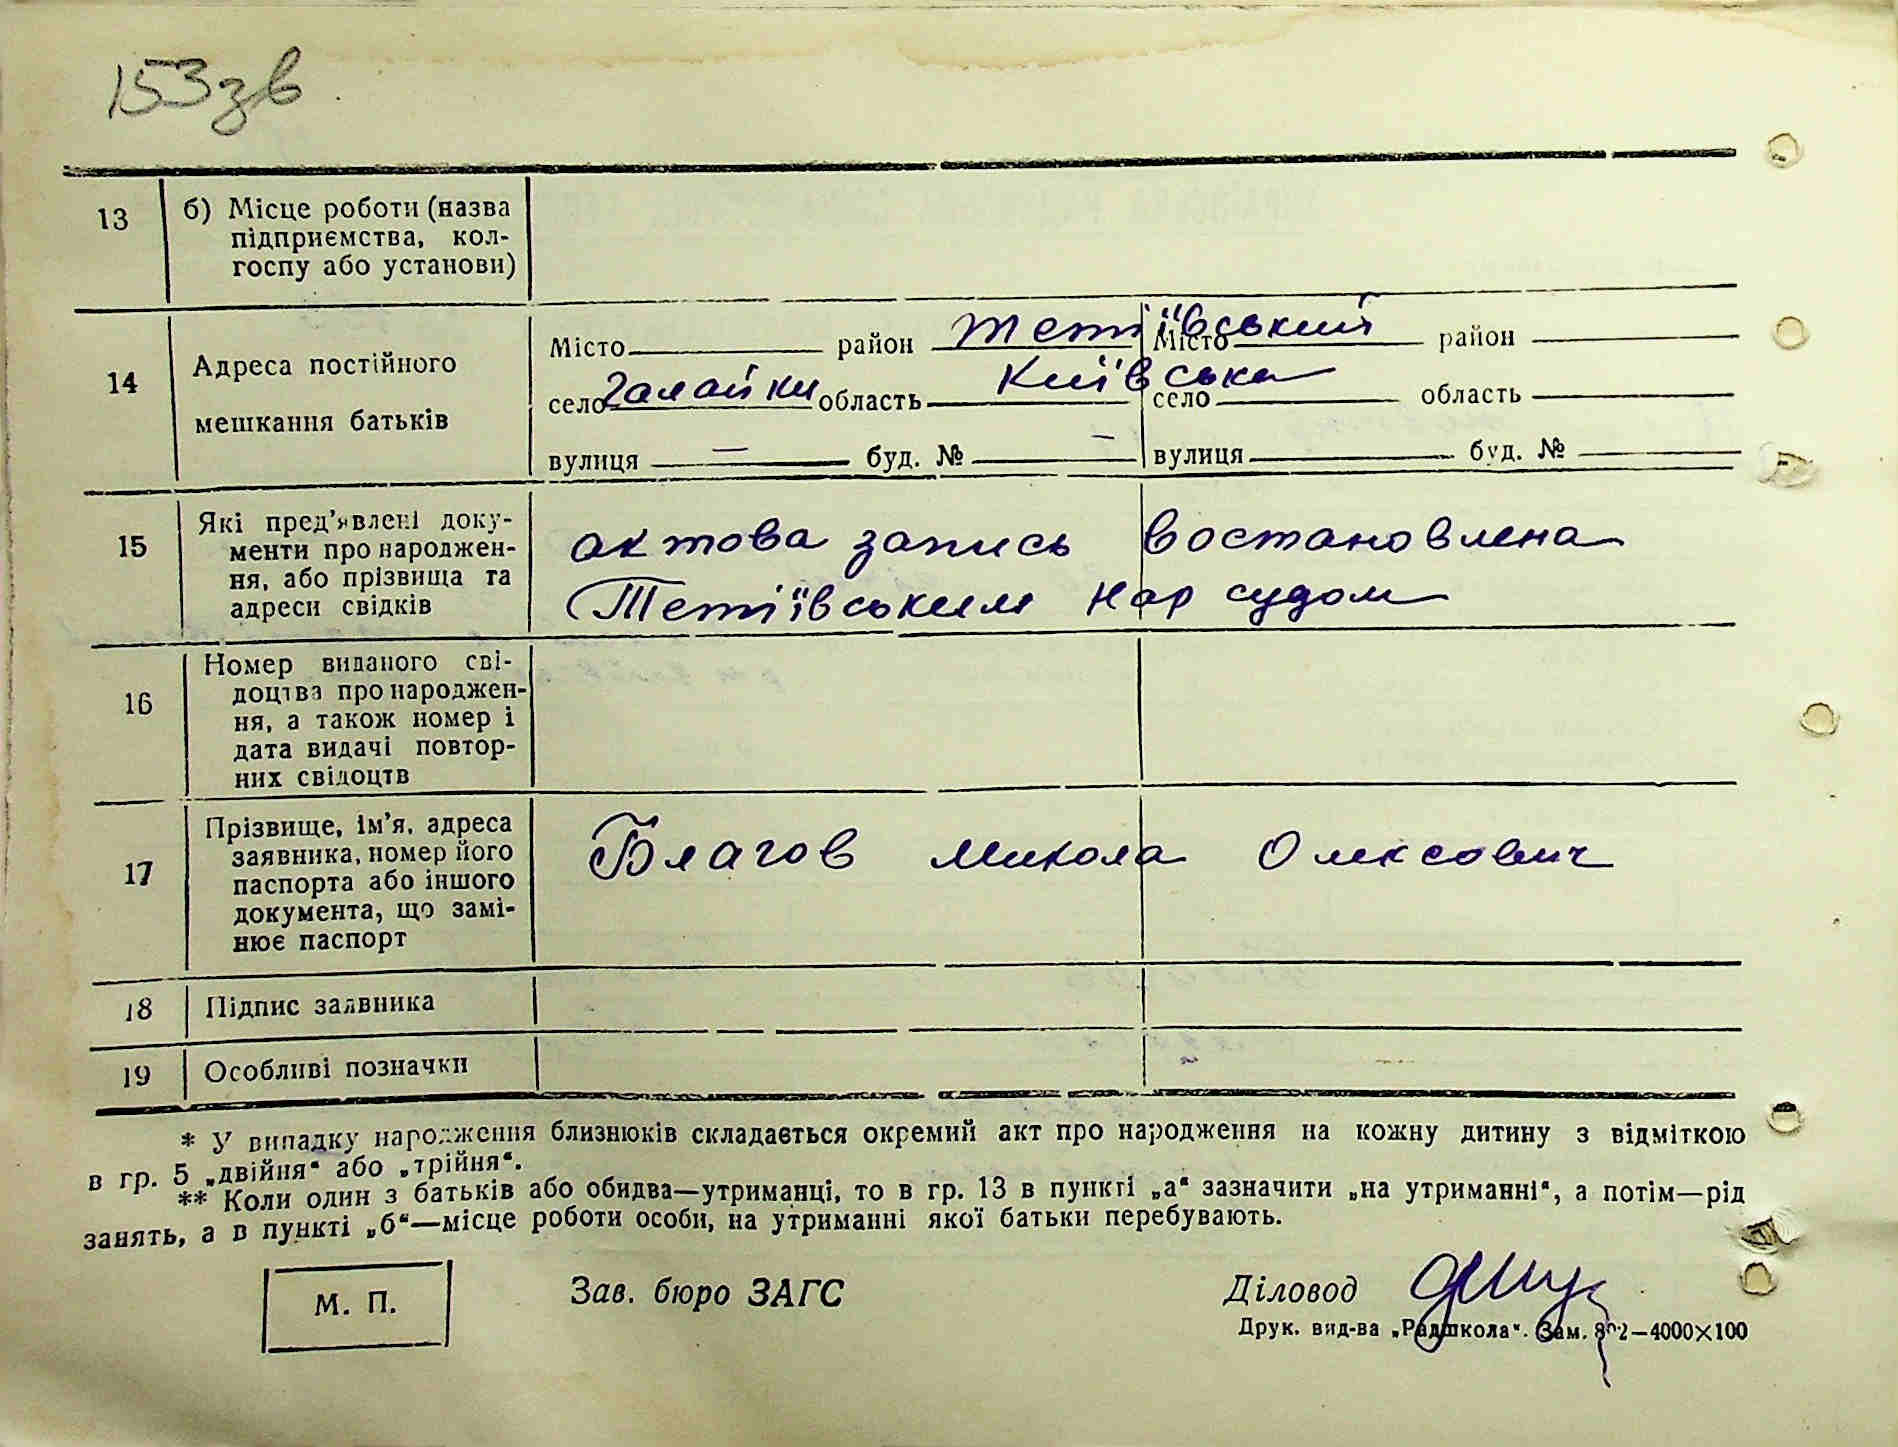 153зв
13 б) Місце роботи (назва
підприємства, кол-
госпу або установи)
14 Адреса постійного
мешкання батьків
Місто район Тетіївський Місто район
село Галайки область Київська село область
вулиця — буд. № — вулиця буд. №
15 Які пред’явлені доку-
менти про народжен-
ня, або прізвища та
адреси свідків
актова запись востановлена
Тетіївським нар судом
16 Номер виданого сві-
доцтва про народжен-
ня, а також номер і
дата видачі повтор-
них свідоцтв
17 Прізвище, ім’я, адреса
заявника, номер його
паспорта або іншого
документа, що замі-
нює паспорт
Благов Микола Олексович
18 Підпис заявника
19 Особливі позначки
* У випадку народження близнюків складається окремий акт про народження на кожну дитину з відміткою
в гр. 5 „двійня“ або „трійня“.
** Коли один з батьків або обидва—утриманці, то в гр. 13 в пункті „а“ зазначити „на утриманні“, а потім—рід
занять, а в пункті „б“—місце роботи особи, на утриманні якої батьки перебувають.
М. П. Зав. бюро ЗАГС Діловод
Друк. вид-ва „Радшкола“. Зам. –4000×100